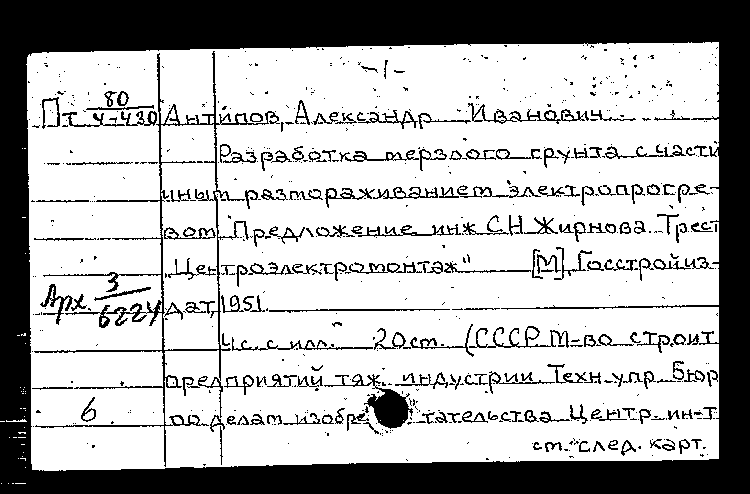 -1-
Пт 80/4-430 Антипов, Александр Иванович.
Разработка мерзлого грунта с части
чным размораживанием электропрогре-
вом Предложение инж С.Н Жирнова. Трест
"Центроэлектромонтаж" [М], Госстройиз-
Арх. 3/6224 дат, 1951.
4 с. с илл. 20см. (СССР. М-во строит
предприятий тяж. индустрии. Техн. упр. Бюр
6 по делам изобретательства Центр. ин-т
см. след. карт.